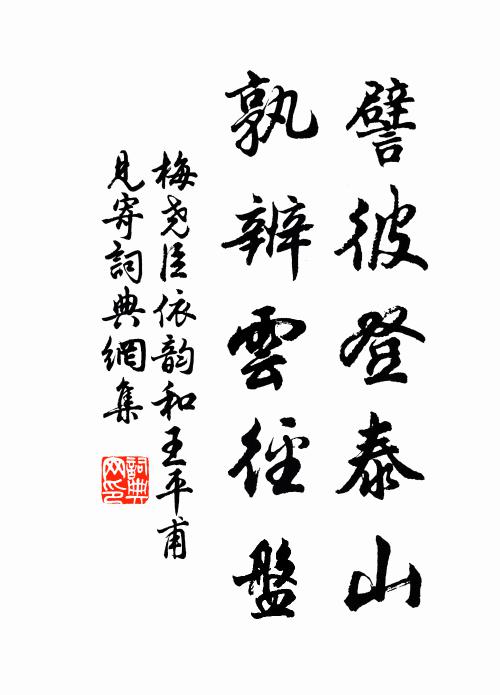 譬彼登泰山
孰辨雲徑盤
梅尧臣依韵和王平甫
見寄詞典網集
詞典
网印